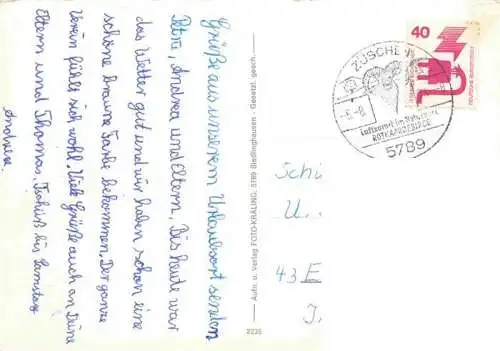 Grüße aus unserem Urlaubsort senden
Petra, Andrea und Eltern. Bis heute war
das Wetter gut und wir haben schon eine
schöne braune Farbe bekommen. Der ganze
Verein fühlt sich wohl. Viele Grüße auch an Deine
Eltern und Thomas. Tschüß bis Samstag
Andrea.
Autn. u. Verlag FOTO-KRALING, 5789 Siedlinghausen - Gesetzl. gesch.
2235
40
DEUTSCHE BUNDESPOST
ZÜSCHEN
Luftkurort im
ROTHAARGEBIRGE
5789
Schü
U.
43 E